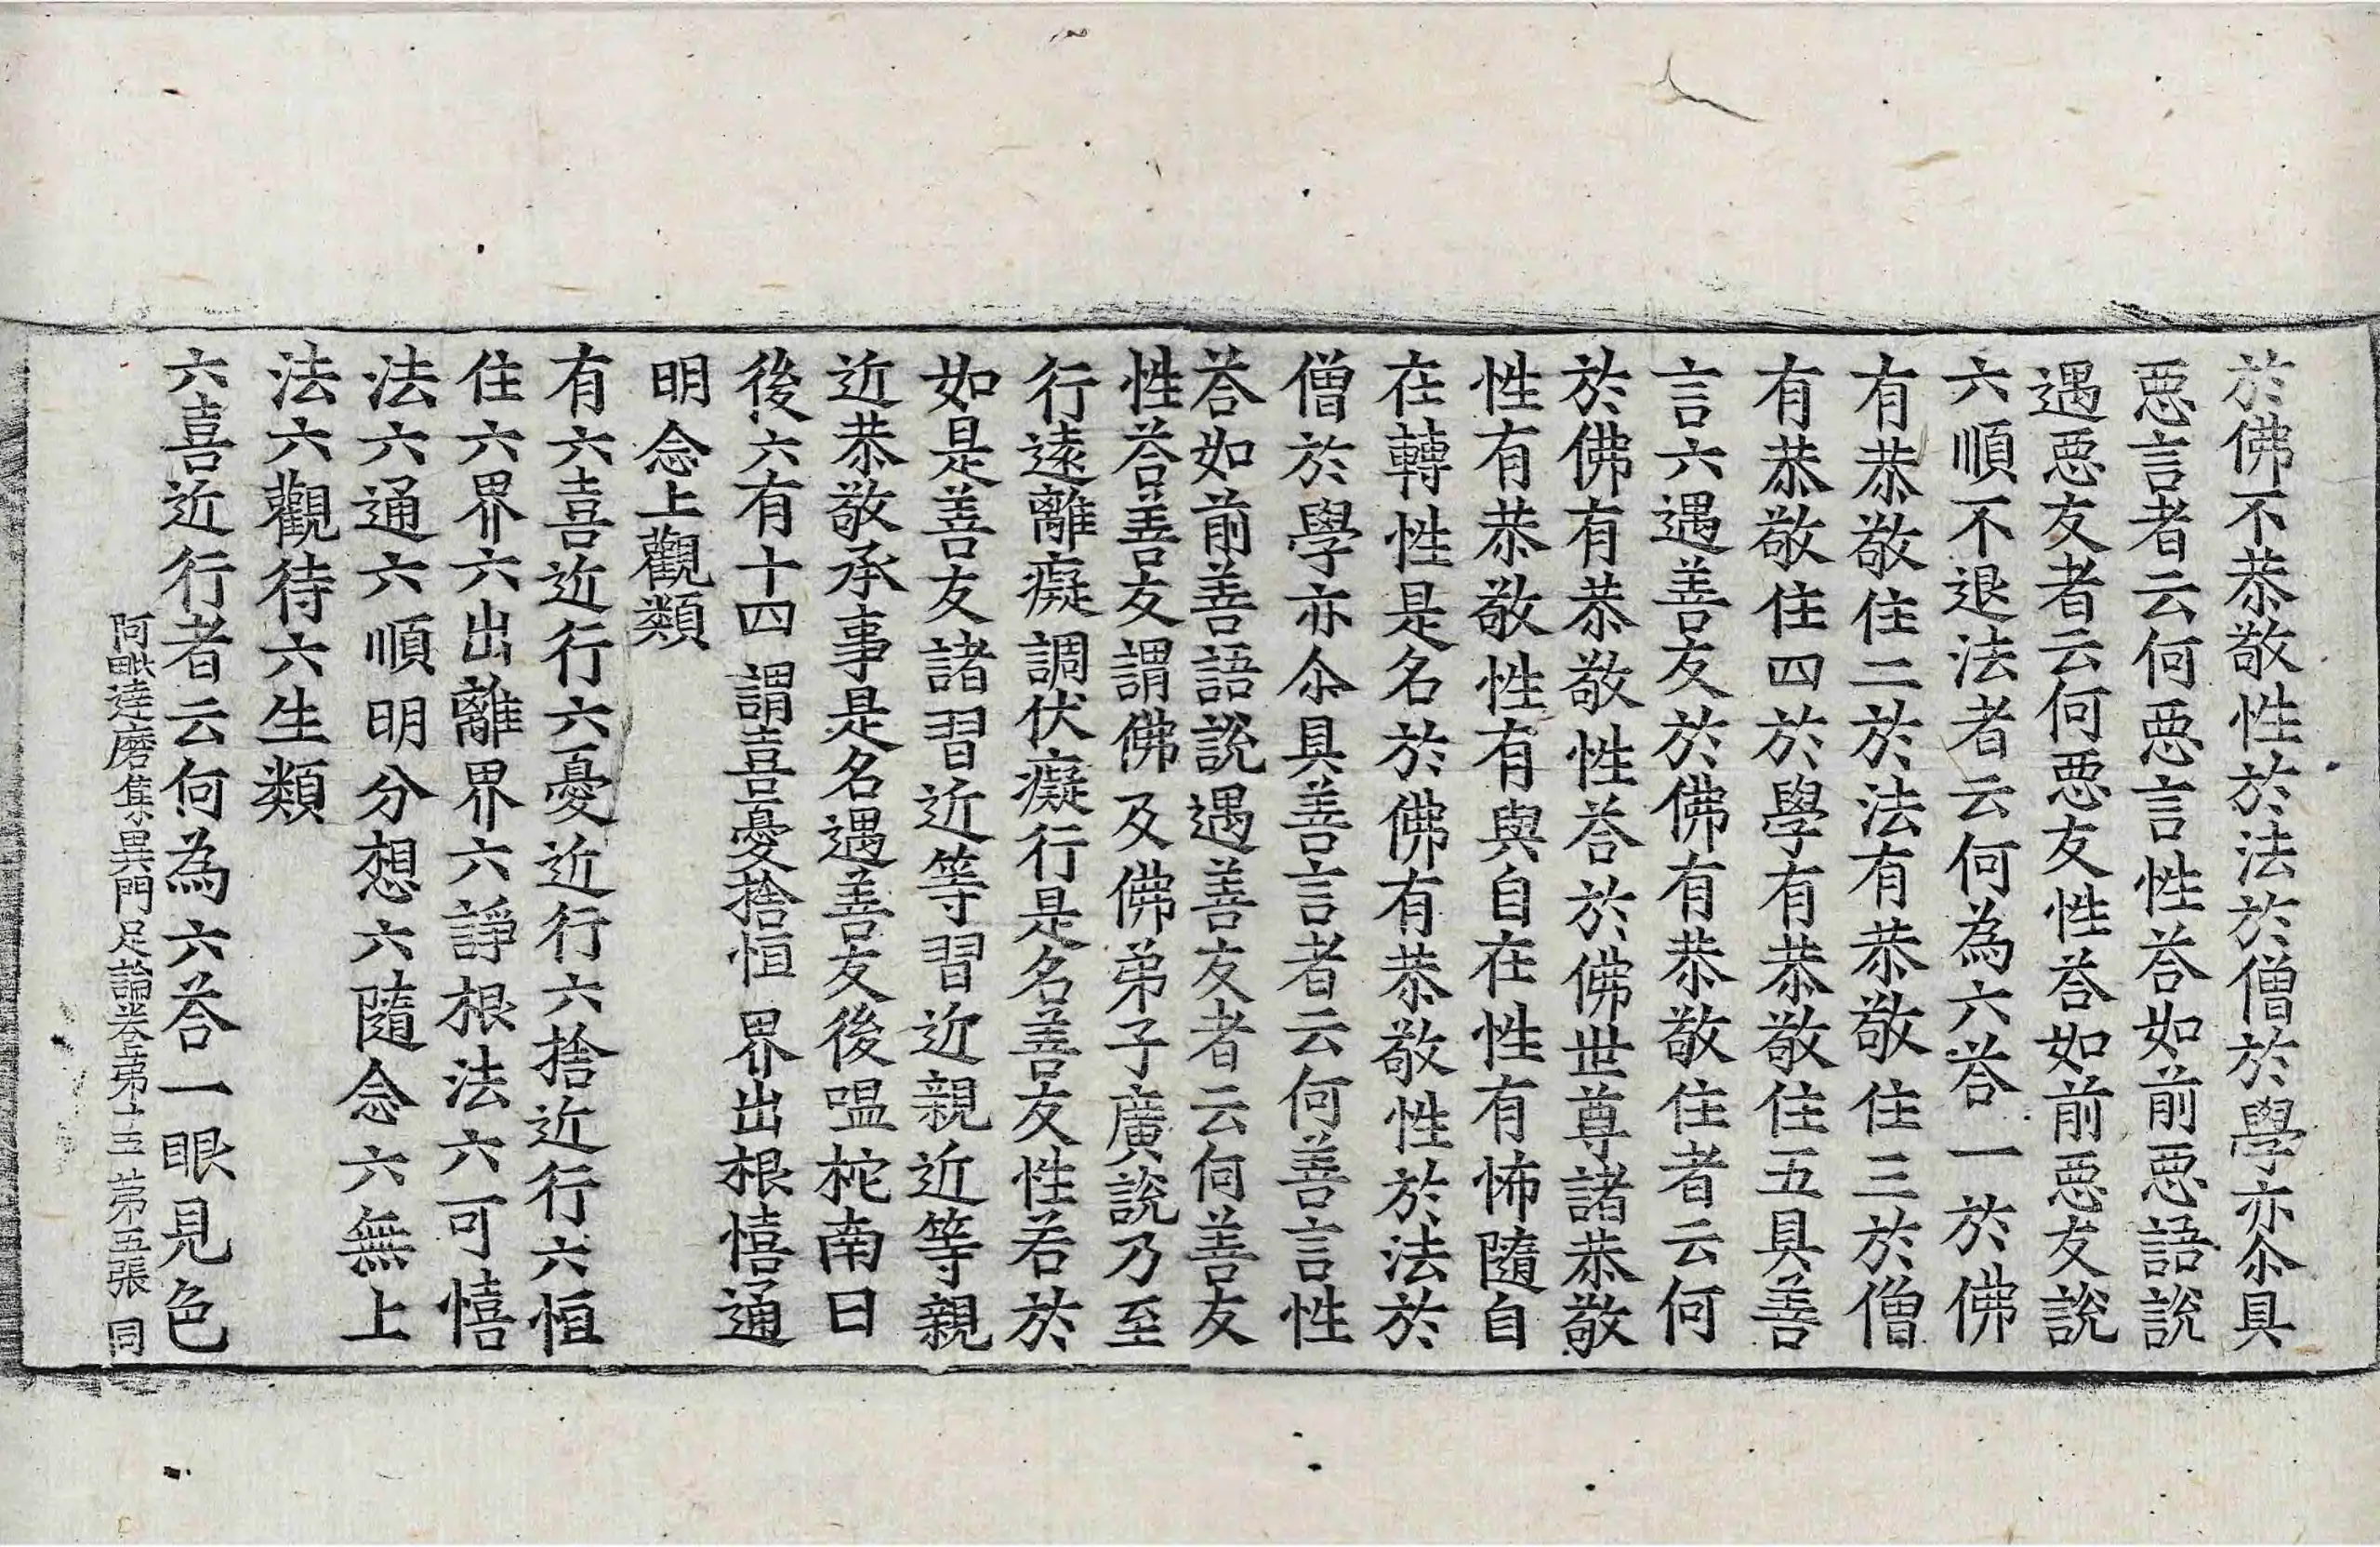 於佛不恭敬性於法於僧於學亦尒具
惡言者云何惡言性荅如前惡語說
遇惡友者云何惡友性荅如前惡友說
六順不退法者云何為六荅一於佛
有恭敬住二於法有恭敬住三於僧
有恭敬住四於學有恭敬住五具善
言六遇善友於佛有恭敬住者云何
於佛有恭敬性荅於佛世尊諸恭敬
性有恭敬性有與自在性有怖隨自
在轉性是名於佛有恭敬性於法於
僧於學亦尒具善言者云何善言性
荅如前善語說遇善友者云何善友
性荅善友謂佛及佛弟子廣說乃至
行遠離癡調伏癡行是名善友性若於
如是善友諸習近等習近親近等親
近恭敬承事是名遇善友後嗢柁南曰
後六有十四 謂喜憂捨恒 界出根憘通
明念上觀類
有六喜近行六憂近行六捨近行六恒
住六界六出離界六諍根法六可憘
法六通六順明分想六隨念六無上
法六觀待六生類
六喜近行者云何為六荅一眼見色
阿毗達磨集異門足論卷第十五 第五張 同